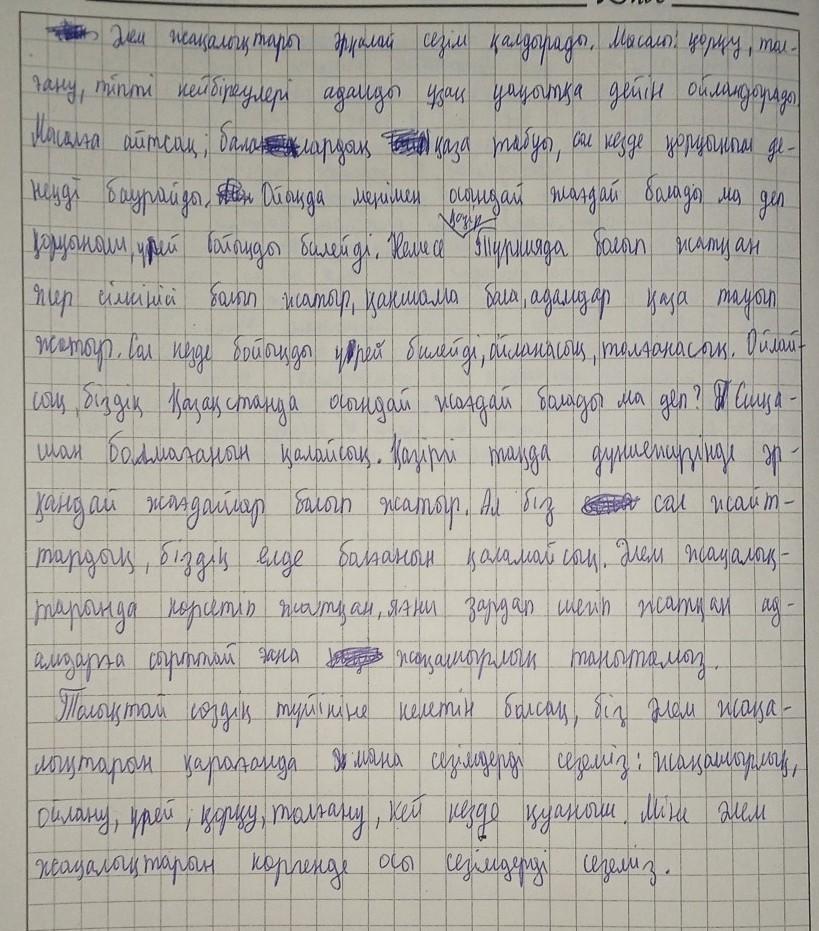 Әлем жаңалықтары әрқалай сезім қалдырады. Мысалы: қорқу, тол-
ғану, тіпті кейбіреулері адамды ұзақ уақытқа дейін ойландырады
Мысалға айтсақ; балалардың қаза табуы, сол кезде қорқыныш де-
неңді баурайды. Ойыңда менімен осындай жағдай болады ма деп
қорқыныш, үрей бойыңды билейді. Немесе қазір Түркияда болып жатқан
жер сілкінісі болып жатыр, қаншама бала, адамдар қаза тауып
жатыр. Сол кезде бойыңды үрей билейді, ойланасың, толғанасың. Ойлай-
сың, біздің Қазақстанда осындай жағдай болады ма деп? Ешқа-
шан болмағанын қалайсың. Қазіргі таңда дүниежүзінде әр-
қандай жағдайлар болып жатыр. Ал біз сол жайт-
тардың, біздің елде болғанын қаламайсың. Әлем жаңалық-
тарында көрсетіп жатқан, яғни зардап шегіп жатқан ад-
амдарға сырттай ғана жанашырлық танытамыз.
Толықтай сөздің түйініне келетін болсақ, біз әлем жаңа-
лықтарын қарағанда мына сезімдерді сеземіз: жанашырлық,
ойлану, үрей, қорқу, толғану, кей кезде қуаныш. Міне әлем
жаңалықтарын көргенде осы сезімдерді сеземіз.